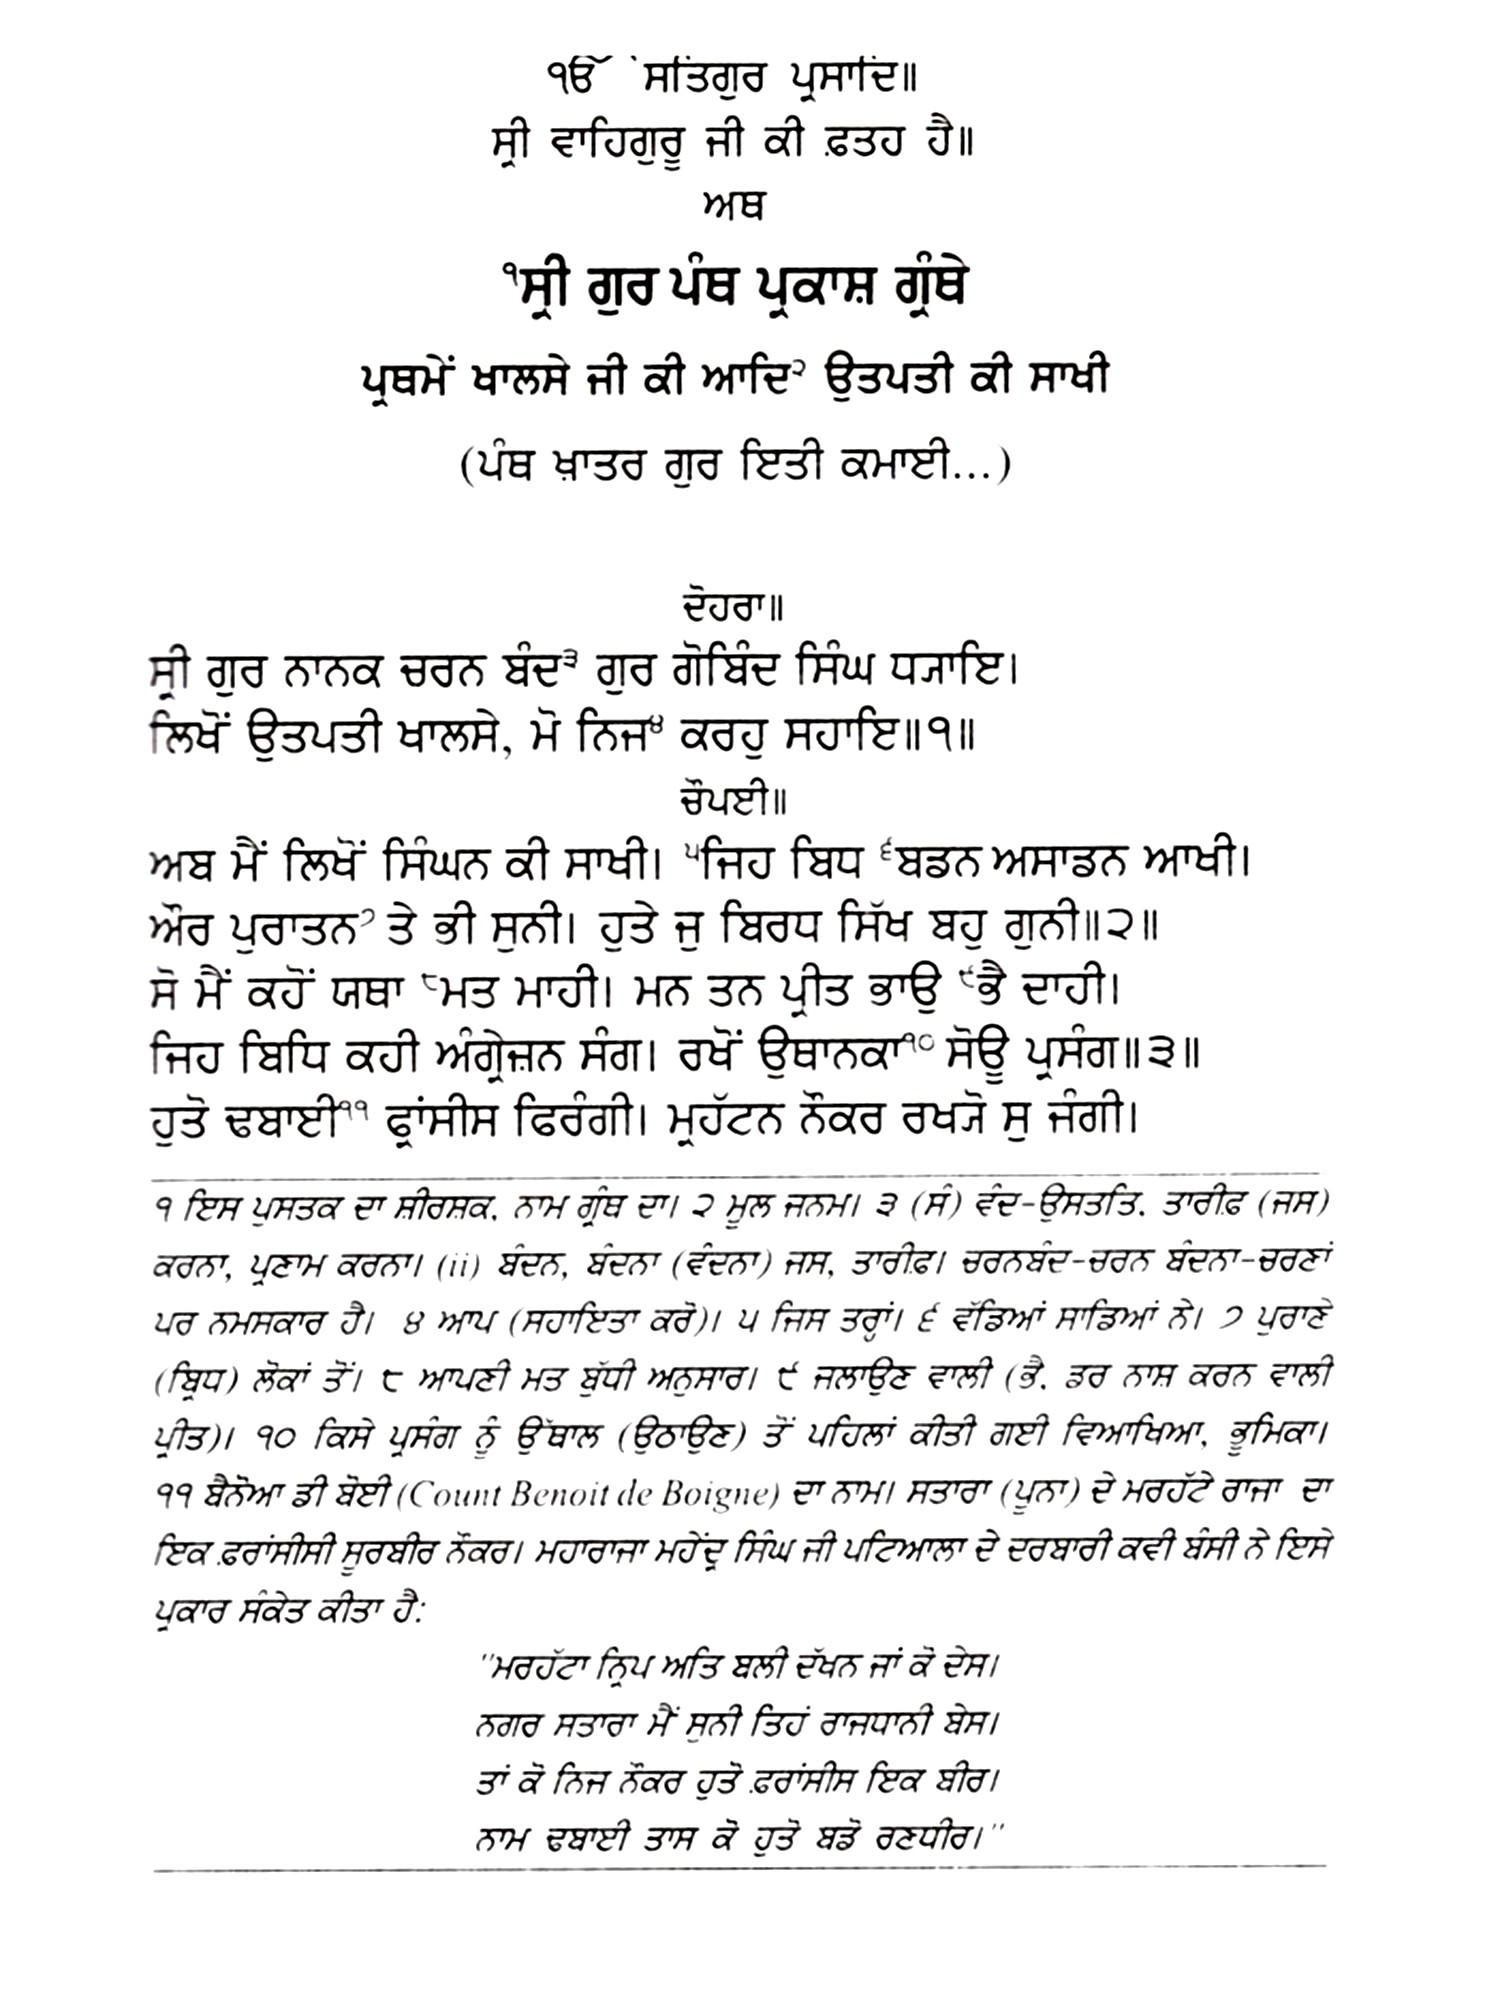 ੴ ਸਤਿਗੁਰ ਪ੍ਰਸਾਦਿ॥
ਸ੍ਰੀ ਵਾਹਿਗੁਰੂ ਜੀ ਕੀ ਫ਼ਤਹ ਹੈ॥
ਅਥ
੧ਸ੍ਰੀ ਗੁਰ ਪੰਥ ਪ੍ਰਕਾਸ਼ ਗ੍ਰੰਥੇ
ਪ੍ਰਥਮੇਂ ਖਾਲਸੇ ਜੀ ਕੀ ਆਦਿ੨ ਉਤਪਤੀ ਕੀ ਸਾਖੀ
(ਪੰਥ ਖ਼ਾਤਰ ਗੁਰ ਇਤੀ ਕਮਾਈ...)
ਦੋਹਰਾ॥
ਸ੍ਰੀ ਗੁਰ ਨਾਨਕ ਚਰਨ ਬੰਦ੩ ਗੁਰ ਗੋਬਿੰਦ ਸਿੰਘ ਧ੍ਯਾਇ।
ਲਿਖੋਂ ਉਤਪਤੀ ਖਾਲਸੇ, ਮੋ ਨਿਜ੪ ਕਰਹੁ ਸਹਾਇ॥੧॥
ਚੌਪਈ॥
ਅਬ ਮੈਂ ਲਿਖੋਂ ਸਿੰਘਨ ਕੀ ਸਾਖੀ। ੫ਜਿਹ ਬਿਧ ੬ਬਡਨ ਅਸਾਡਨ ਆਖੀ।
ਔਰ ਪੁਰਾਤਨ੭ ਤੇ ਭੀ ਸੁਨੀ। ਹੁਤੇ ਜੁ ਬਿਰਧ ਸਿੱਖ ਬਹੁ ਗੁਨੀ॥੨॥
ਸੋ ਮੈਂ ਕਹੋਂ ਯਥਾ ੮ਮਤ ਮਾਹੀ। ਮਨ ਤਨ ਪ੍ਰੀਤ ਭਾਉ ੯ਭੈ ਦਾਹੀ।
ਜਿਹ ਬਿਧਿ ਕਹੀ ਅੰਗ੍ਰੇਜ਼ਨ ਸੰਗ। ਰਖੋਂ ਉਥਾਨਕਾ੧੦ ਸੋਊ ਪ੍ਰਸੰਗ॥੩॥
ਹੁਤੋ ਢਬਾਈ੧੧ ਫ੍ਰਾਂਸੀਸ ਫਿਰੰਗੀ। ਮ੍ਰਹੱਟਨ ਨੌਕਰ ਰਖ੍ਯੋ ਸੁ ਜੰਗੀ।
੧ ਇਸ ਪੁਸਤਕ ਦਾ ਸ਼ੀਰਸ਼ਕ, ਨਾਮ ਗ੍ਰੰਥ ਦਾ। ੨ ਮੂਲ ਜਨਮ। ੩ (ਸੰ) ਵੰਦ-ਉਸਤਤਿ, ਤਾਰੀਫ਼ (ਜਸ)
ਕਰਨਾ, ਪ੍ਰਣਾਮ ਕਰਨਾ। (ii) ਬੰਦਨ, ਬੰਦਨਾ (ਵੰਦਨਾ) ਜਸ, ਤਾਰੀਫ਼। ਚਰਨਬੰਦ-ਚਰਨ ਬੰਦਨਾ-ਚਰਣਾਂ
ਪਰ ਨਮਸਕਾਰ ਹੈ। ੪ ਆਪ (ਸਹਾਇਤਾ ਕਰੋ)। ੫ ਜਿਸ ਤਰ੍ਹਾਂ। ੬ ਵੱਡਿਆਂ ਸਾਡਿਆਂ ਨੇ। ੭ ਪੁਰਾਣੇ
(ਬ੍ਰਿਧ) ਲੋਕਾਂ ਤੋਂ। ੮ ਆਪਣੀ ਮਤ ਬੁੱਧੀ ਅਨੁਸਾਰ। ੯ ਜਲਾਉਣ ਵਾਲੀ (ਭੈ, ਡਰ ਨਾਸ਼ ਕਰਨ ਵਾਲੀ
ਪ੍ਰੀਤ)। ੧੦ ਕਿਸੇ ਪ੍ਰਸੰਗ ਨੂੰ ਉੱਥਾਲ (ਉਠਾਉਣ) ਤੋਂ ਪਹਿਲਾਂ ਕੀਤੀ ਗਈ ਵਿਆਖਿਆ, ਭੂਮਿਕਾ।
੧੧ ਬੈਨੋਆ ਡੀ ਬੋਈ (Count Benoit de Boigne) ਦਾ ਨਾਮ। ਸਤਾਰਾ (ਪੂਨਾ) ਦੇ ਮਰਹੱਟੇ ਰਾਜਾ ਦਾ
ਇਕ ਫ਼ਰਾਂਸੀਸੀ ਸੂਰਬੀਰ ਨੌਕਰ। ਮਹਾਰਾਜਾ ਮਹੇਂਦ੍ਰ ਸਿੰਘ ਜੀ ਪਟਿਆਲਾ ਦੇ ਦਰਬਾਰੀ ਕਵੀ ਬੰਸੀ ਨੇ ਇਸੇ
ਪ੍ਰਕਾਰ ਸੰਕੇਤ ਕੀਤਾ ਹੈ:
"ਮਰਹੱਟਾ ਨ੍ਰਿਪ ਅਤਿ ਬਲੀ ਦੱਖਨ ਜਾਂ ਕੋ ਦੇਸ।
ਨਗਰ ਸਤਾਰਾ ਮੈਂ ਸੁਨੀ ਤਿਹਂ ਰਾਜਧਾਨੀ ਬੇਸ।
ਤਾਂ ਕੋ ਨਿਜ ਨੌਕਰ ਹੁਤੋ ਫ਼ਰਾਂਸੀਸ ਇਕ ਬੀਰ।
ਨਾਮ ਢਬਾਈ ਤਾਸ ਕੋ ਹੁਤੋ ਬਡੋ ਰਣਧੀਰ।"